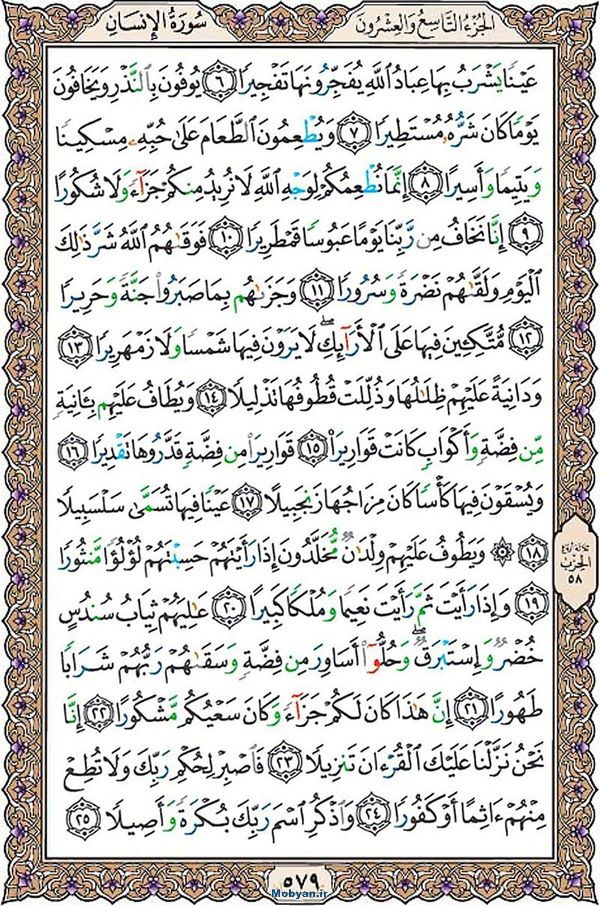 الجزء التاسع والعشرون
سورة الإنسان
عَيْنًا يَشْرَبُ بِهَا عِبَادُ اللَّهِ يُفَجِّرُونَهَا تَفْجِيرًا ٦ يُوفُونَ بِالنَّذْرِ وَيَخَافُونَ
يَوْمًا كَانَ شَرُّهُ مُسْتَطِيرًا ٧ وَيُطْعِمُونَ الطَّعَامَ عَلَىٰ حُبِّهِ مِسْكِينًا
وَيَتِيمًا وَأَسِيرًا ٨ إِنَّمَا نُطْعِمُكُمْ لِوَجْهِ اللَّهِ لَا نُرِيدُ مِنكُمْ جَزَاءً وَلَا شُكُورًا
٩ إِنَّا نَخَافُ مِن رَّبِّنَا يَوْمًا عَبُوسًا قَمْطَرِيرًا ١٠ فَوَقَىٰهُمُ اللَّهُ شَرَّ ذَٰلِكَ
الْيَوْمِ وَلَقَّىٰهُمْ نَضْرَةً وَسُرُورًا ١١ وَجَزَىٰهُم بِمَا صَبَرُوا جَنَّةً وَحَرِيرًا
١٢ مُّتَّكِـِٔينَ فِيهَا عَلَى الْأَرَآئِكِ ۖ لَا يَرَوْنَ فِيهَا شَمْسًا وَلَا زَمْهَرِيرًا ١٣
وَدَانِيَةً عَلَيْهِمْ ظِلَٰلُهَا وَذُلِّلَتْ قُطُوفُهَا تَذْلِيلًا ١٤ وَيُطَافُ عَلَيْهِم بِـَٔانِيَةٍ
مِّن فِضَّةٍ وَأَكْوَابٍ كَانَتْ قَوَارِيرَا۠ ١٥ قَوَارِيرَا۟ مِن فِضَّةٍ قَدَّرُوهَا تَقْدِيرًا ١٦
وَيُسْقَوْنَ فِيهَا كَأْسًا كَانَ مِزَاجُهَا زَنجَبِيلًا ١٧ عَيْنًا فِيهَا تُسَمَّىٰ سَلْسَبِيلًا
١٨ ۞ وَيَطُوفُ عَلَيْهِمْ وِلْدَٰنٌ مُّخَلَّدُونَ إِذَا رَأَيْتَهُمْ حَسِبْتَهُمْ لُؤْلُؤًا مَّنثُورًا
١٩ وَإِذَا رَأَيْتَ ثَمَّ رَأَيْتَ نَعِيمًا وَمُلْكًا كَبِيرًا ٢٠ عَٰلِيَهُمْ ثِيَابُ سُندُسٍ
خُضْرٌ وَإِسْتَبْرَقٌ ۖ وَحُلُّوٓا أَسَاوِرَ مِن فِضَّةٍ وَسَقَىٰهُمْ رَبُّهُمْ شَرَابًا
طَهُورًا ٢١ إِنَّ هَٰذَا كَانَ لَكُمْ جَزَآءً وَكَانَ سَعْيُكُم مَّشْكُورًا ٢٢ إِنَّا
نَحْنُ نَزَّلْنَا عَلَيْكَ الْقُرْءَانَ تَنزِيلًا ٢٣ فَاصْبِرْ لِحُكْمِ رَبِّكَ وَلَا تُطِعْ
مِنْهُمْ ءَاثِمًا أَوْ كَفُورًا ٢٤ وَاذْكُرِ اسْمَ رَبِّكَ بُكْرَةً وَأَصِيلًا ٢٥
ثلاثة أرباع
الحزب
٥٨
٥٧٩
Mobyan.ir